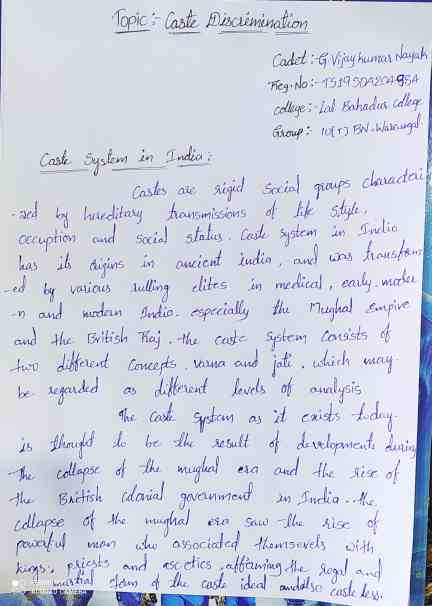 Topic: Caste Discrimination
Cadet:- G. Vijay kumar Nayak
Reg. No:-
college:- Lal Bahadur college
Group:- 10(T) BN-Warangal
Caste System in India:
Castes are rigid Social groups characteri
-zed by hereditary transmissions of life style,
occupation and social status. Caste system in India
has its origins in ancient india, and was transform
-ed by various rulling elites in medical, early-moder
-n and modern India. especially the Mughal empire
and the British Raj. the caste System Consists of
two different Concepts. varna and jati, which may
be regarded as different levels of analysis
The Caste System as it exists today.
is thought to be the result of developments during
the collapse of the mughal era and the rise of
the British colonial government in India. the
collapse of the mughal era saw the rise of
powerful man who associated themsevels with
kings, priests and ascetics, affarming the regal and
martial of the caste ideal and also caste less.